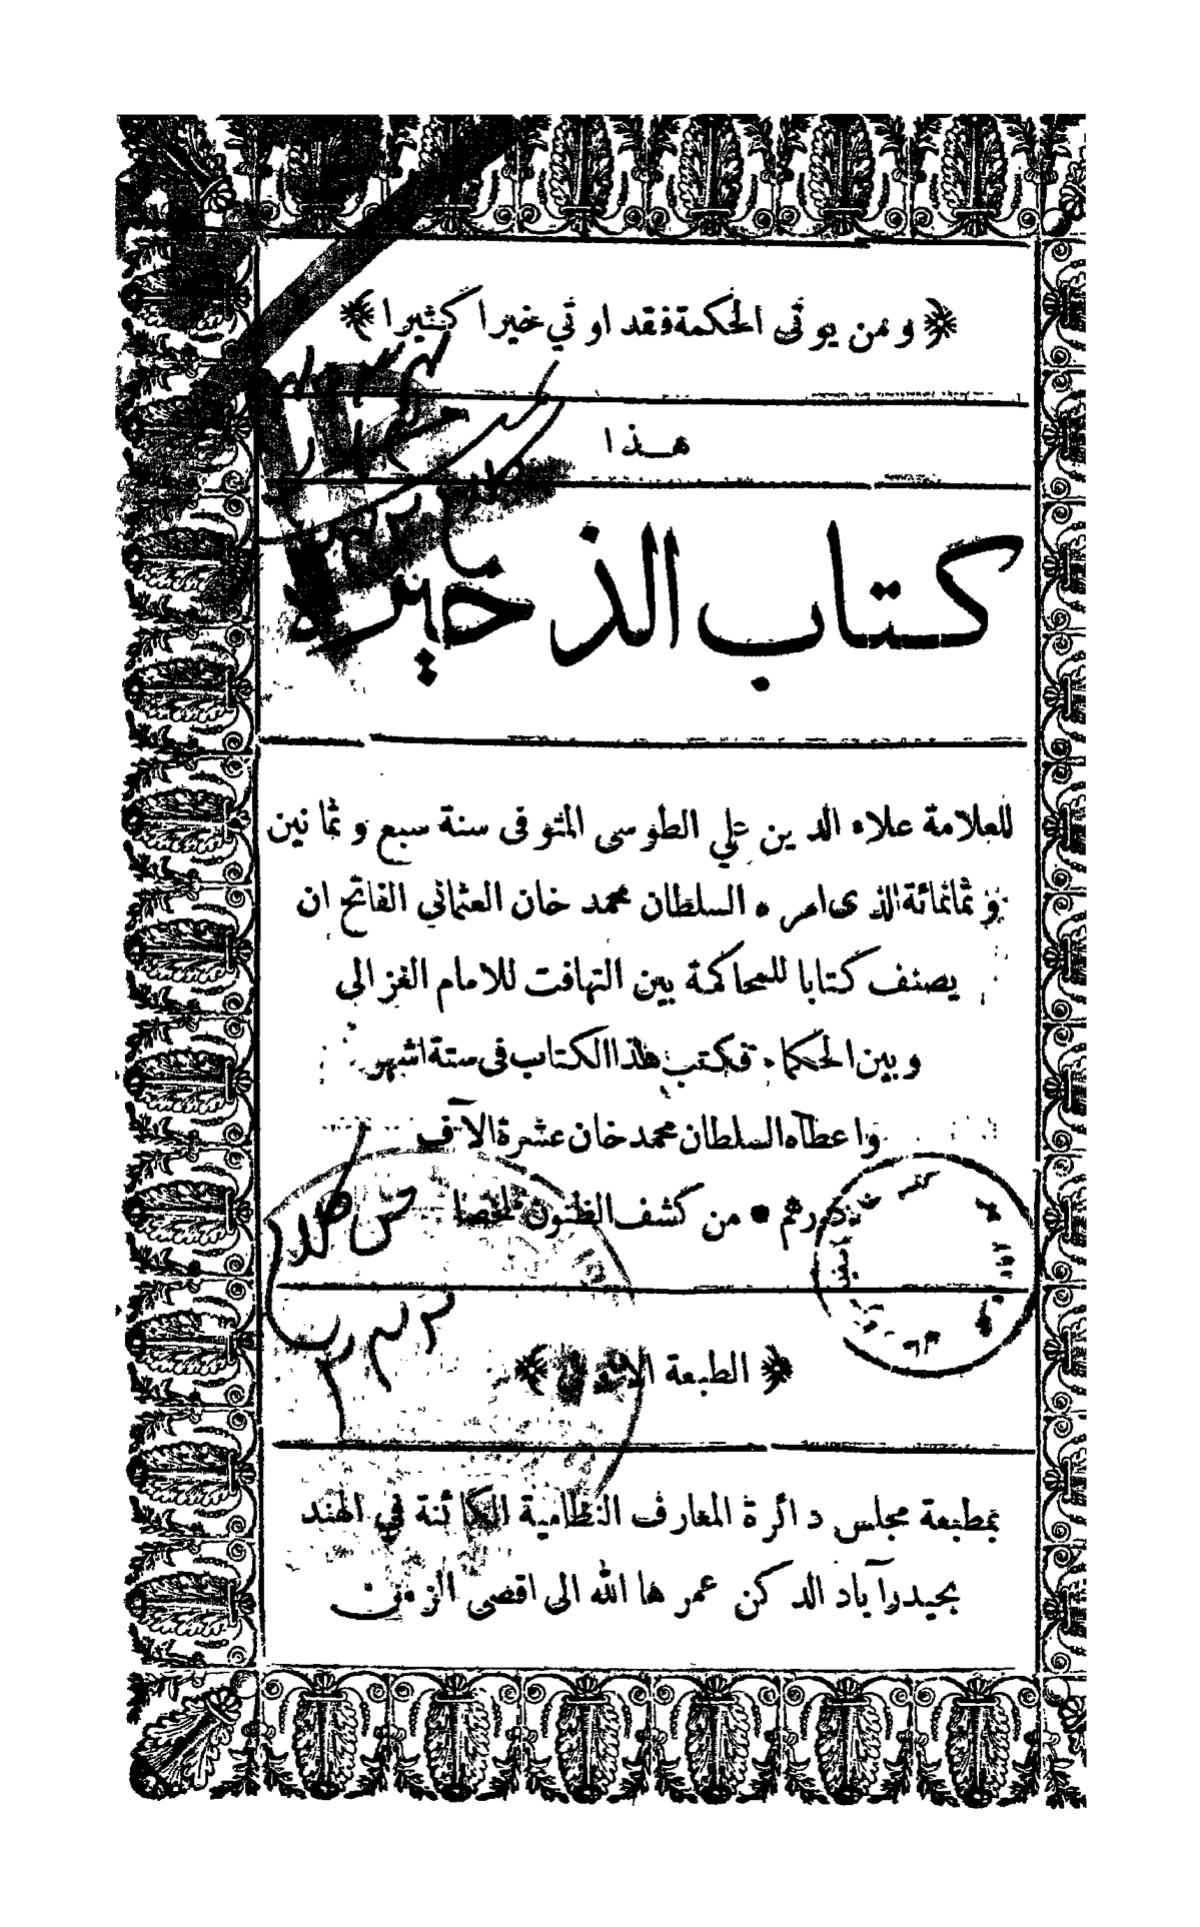 ومن يوتى الحكمة فقد اوتي خيرا كثيرا
هذا
كتاب الذخيرة
للعلامة علاء الدين علي الطوسى المتوفى سنة سبع وثمانين
وثمانمائة الذى امره السلطان محمد خان العثماني الفاتح ان
يصنف كتابا للمحاكمة بين التهافت للامام الغزالى
وبين الحكماء فكتب هذا الكتاب فى ستة اشهر
واعطاه السلطان محمد خان عشرة الآف
درهم • من كشف الظنون ملخصا
الطبعة الاولى
بمطبعة مجلس دائرة المعارف النظامية الكائنة في الهند
بحيدرآباد الدكن عمرها الله الى اقصى الزمن